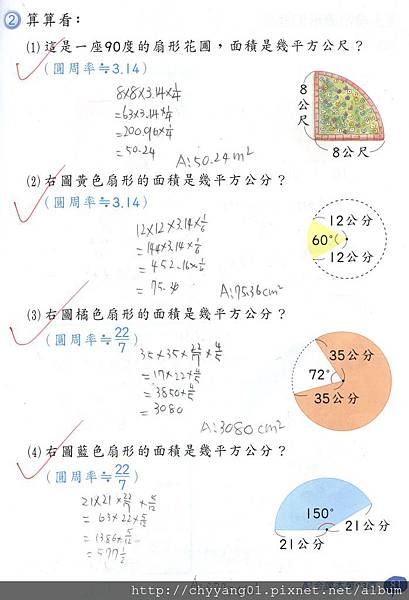 2 算算看：
(1) 這是一座90度的扇形花圃，面積是幾平方公尺？
(圓周率≒3.14)
8×8×3.14×1/4
=63×3.14×1/4
=200.96×1/4
=50.24
A:50.24m²
8公尺
8公尺
(2) 右圖黃色扇形的面積是幾平方公分？
(圓周率≒3.14)
12×12×3.14×1/6
=144×3.14×1/6
=452.16×1/6
=75.36
A:75.36cm²
12公分
60°
12公分
(3) 右圖橘色扇形的面積是幾平方公分？
(圓周率≒22/7)
35×35×22/7×4/5
=17×22×4/5
=3850×4/5
=3080
A:3080cm²
35公分
72°
35公分
(4) 右圖藍色扇形的面積是幾平方公分？
(圓周率≒22/7)
21×21×22/7×5/12
=63×22×5/12
=1386×5/12
=577 1/2
150°
21公分
21公分
http://chyyang01.pixnet.net/blog